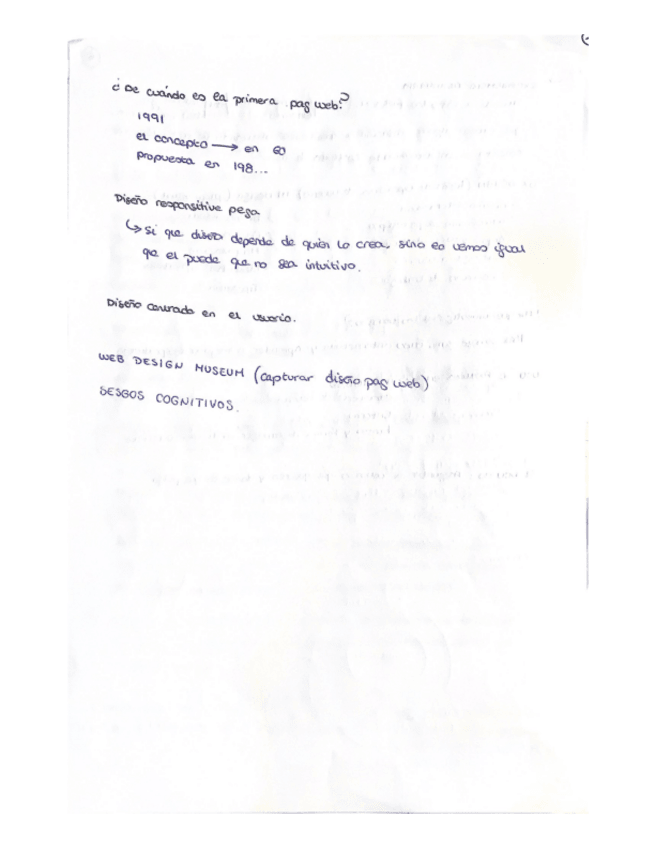 ¿De cuándo es la primera pag web?
1991
el concepto → en 60
Propuesta en 198...
Diseño responsitive pega
↳ Si que diseño depende de quien lo crea, sino es vemos igual
que el puede que no sea intuitivo.
Diseño centrado en el usuario.
WEB DESIGN MUSEUM (capturar diseño pag web)
SESGOS COGNITIVOS.